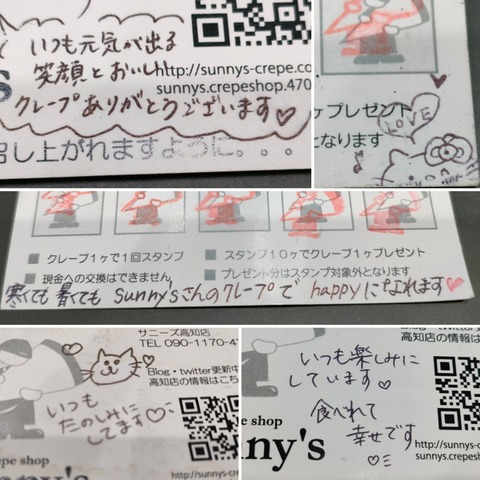 いつも元気が出る
笑顔とおいしい
http://sunnys-crepe.co
sunnys.crepeshop.470
クレープありがとうございます♡
召し上がれますように。。。
プレゼント
LOVE
なります
クレープ1ヶで1回スタンプ
スタンプ10ヶでクレープ1ヶプレゼント
現金への交換はできません
プレゼント分はスタンプ対象外となります
寒くても暑くてもsunny'sさんのクレープでhappyになれます♡
サニーズ高知店
TEL 090-1170-4
Blog・twitter更新中
高知店の情報はこち
いつも
たのしみに
してます♡
epe shop
nny's
http://sunn
sunnys.crep
いつも楽しみに
しています♡
Blog・
高知店
食べれて
幸せです
♡
pe shop
ny's
http://su
sunnys.c